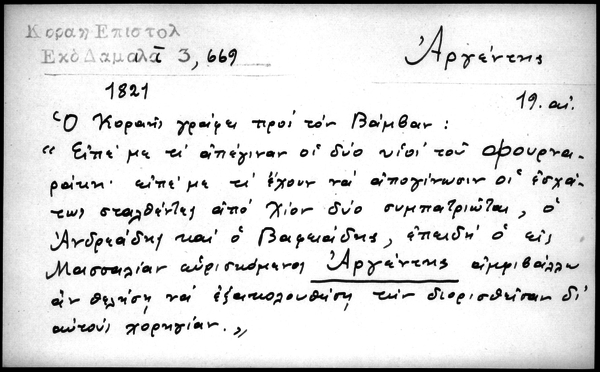 Κοραη Επιστολ
Εκδ Δαμαλα τ 3, 669
Ἀργέντης
1821
19. αἰ.
Ὁ Κοραῆς γράφει πρὸς τὸν Βάμβαν:
"Εἰπέ με τί ἀπέγιναν οἱ δύο υἱοὶ τοῦ Φουρνα-
ράκη· εἰπέ με τί ἔχουν νὰ ἀπογίνωσιν οἱ ἐσχά-
τως σταλθέντες ἀπὸ Χίον δύο συμπατριῶται, ὁ
Ἀνδρεάδης καὶ ὁ Βαφειάδης, ἐπειδὴ ὁ εἰς
Μασσαλίαν εὑρισκόμενος Ἀργέντης ἀμφιβάλλω
ἂν θελήσῃ νὰ ἐξακολουθήσῃ τὴν διορισθεῖσαν δι'
αὐτοὺς χορηγίαν."